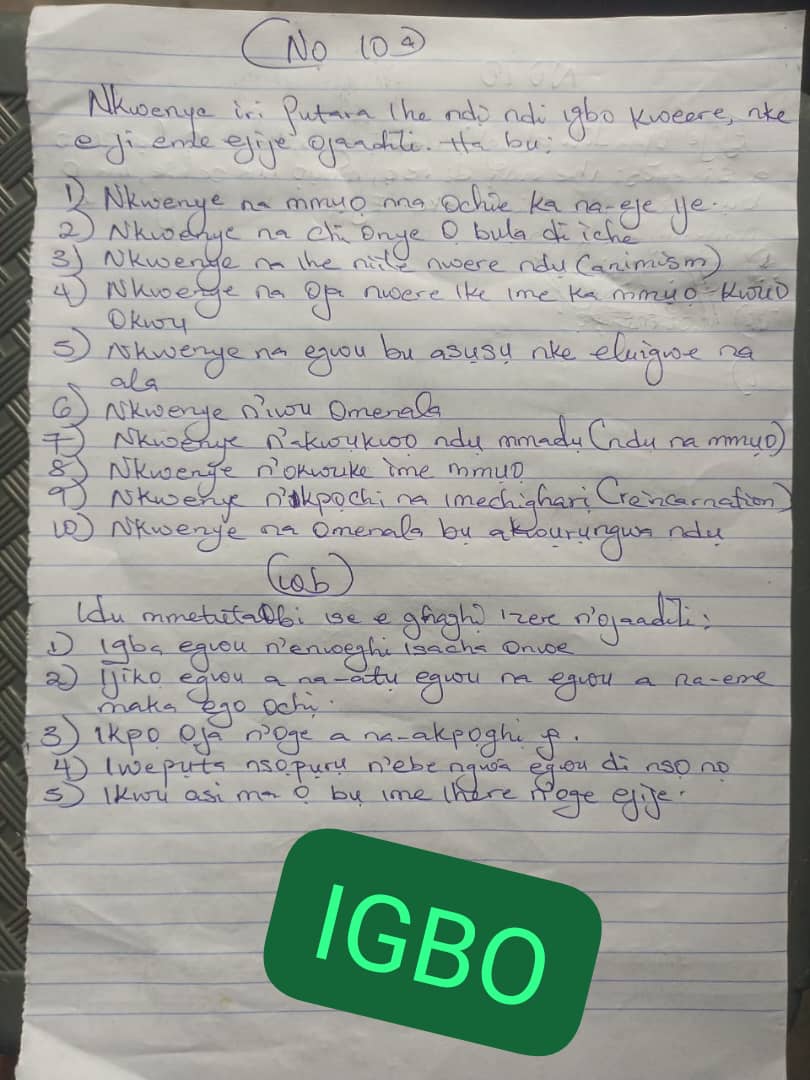 No 10a
Nkwenye iri putara Ihe ndi ndi igbo kweere, nke
e ji eme ejije ojaadili. Ha bu:
1) Nkwenye na mmụọ ma ochie ka na-eje ije.
2) Nkwenye na chi onye ọ bula di iche
3) Nkwenye na Ihe niile nwere ndu (animism)
4) Nkwenye na Ọja nwere Ike Ime ka mmụọ kwuo
okwu
5) Nkwenye na egwu bu asụsụ nke eluigwe na
ala
6) Nkwenye n'iwu Omenala
7) Nkwenye n'akwukwọ ndụ mmadụ (ndu na mmụọ)
8) Nkwenye n'okwuke ime mmụọ
9) Nkwenye n'ikpochi na Imechighari (reincarnation)
10) Nkwenye na Omenala bụ akwụrụngwa ndụ
10b
Idu mmehie ise e ghaghi Izere n'ojaadili:
1) Igba egwu n'enweghi Isacha Onwe
2) Ijiko egwu a na-atu egwu na egwu a na-eme
maka ego ochi.
3) Ikpọ Ọja n'oge a na-akpoghi ya.
4) Iweputa nsọpuru n'ebe ngwa egwu di nso nọ
5) Ikwu asi ma ọ bụ ime Ihere n'oge ejije.
IGBO